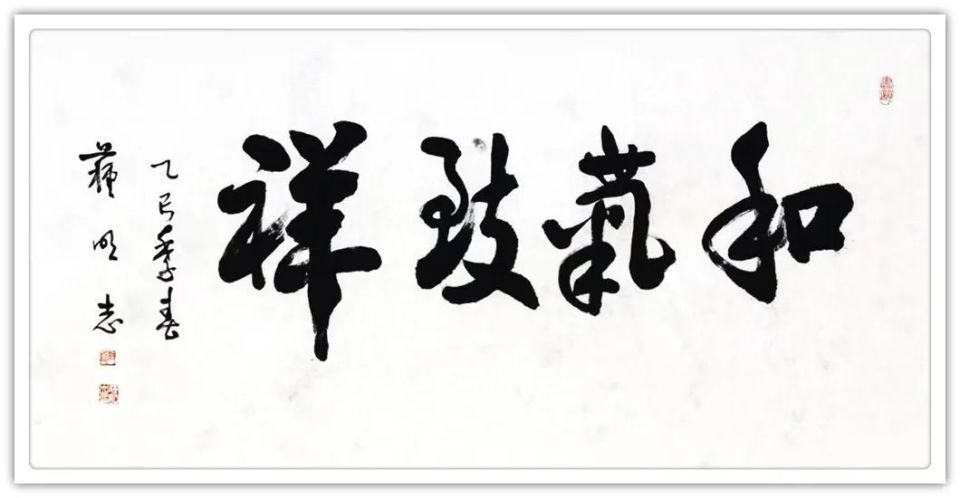 和氣致祥
乙巳季春
蘇明志